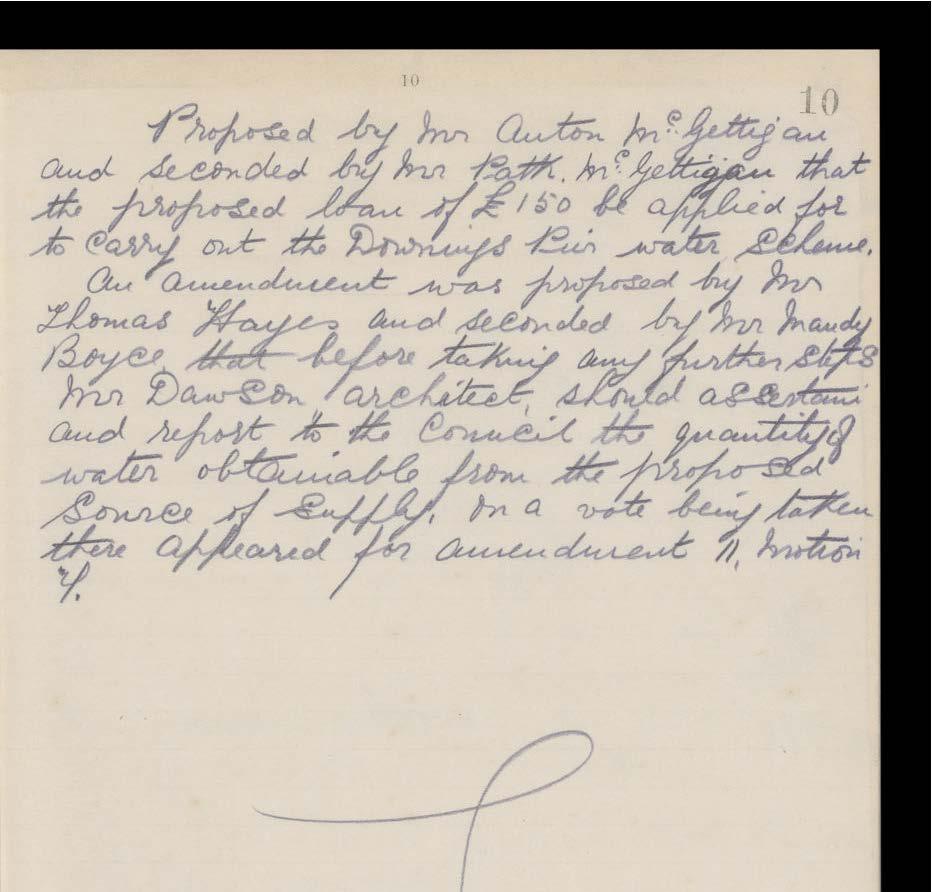 10
10
Proposed by Mr Anton McGettigan
and seconded by Mr Path. McGettigan that
the proposed loan of £150 be applied for
to carry out the Downings Pier water scheme.
An amendment was proposed by Mr
Thomas Hayes and seconded by Mr Mandy
Boyce, that before taking any further steps
Mr Dawson architect, should ascertain
and report to the Council the quantity of
water obtainable from the proposed
Source of Supply. On a vote being taken
there appeared for amendment 11, motion